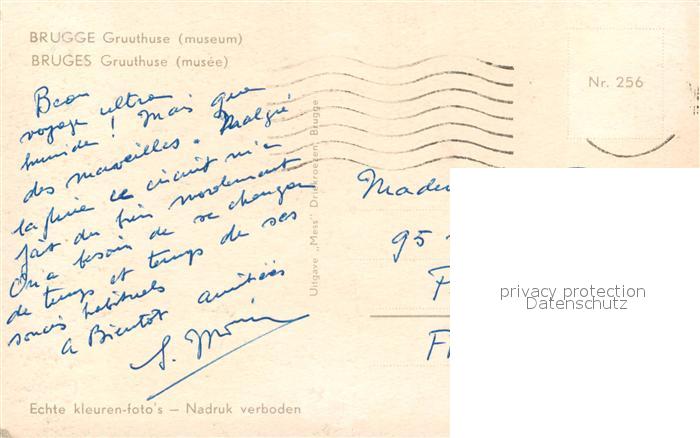 BRUGGE Gruuthuse (museum)
BRUGES Gruuthuse (musée)
Beau
voyage ultra
humide ! Mais que
des merveilles. Malgré
la pluie ce circuit m'a
fait du bien moralement
On a besoin de se changer
de temps et temps de ses
soucis habituels
a Bientot amitiés
Uitgave „Mess" Brugge
Nr. 256
Madem
95
F
privacy protection
Datenschutz
Echte kleuren-foto's — Nadruk verboden